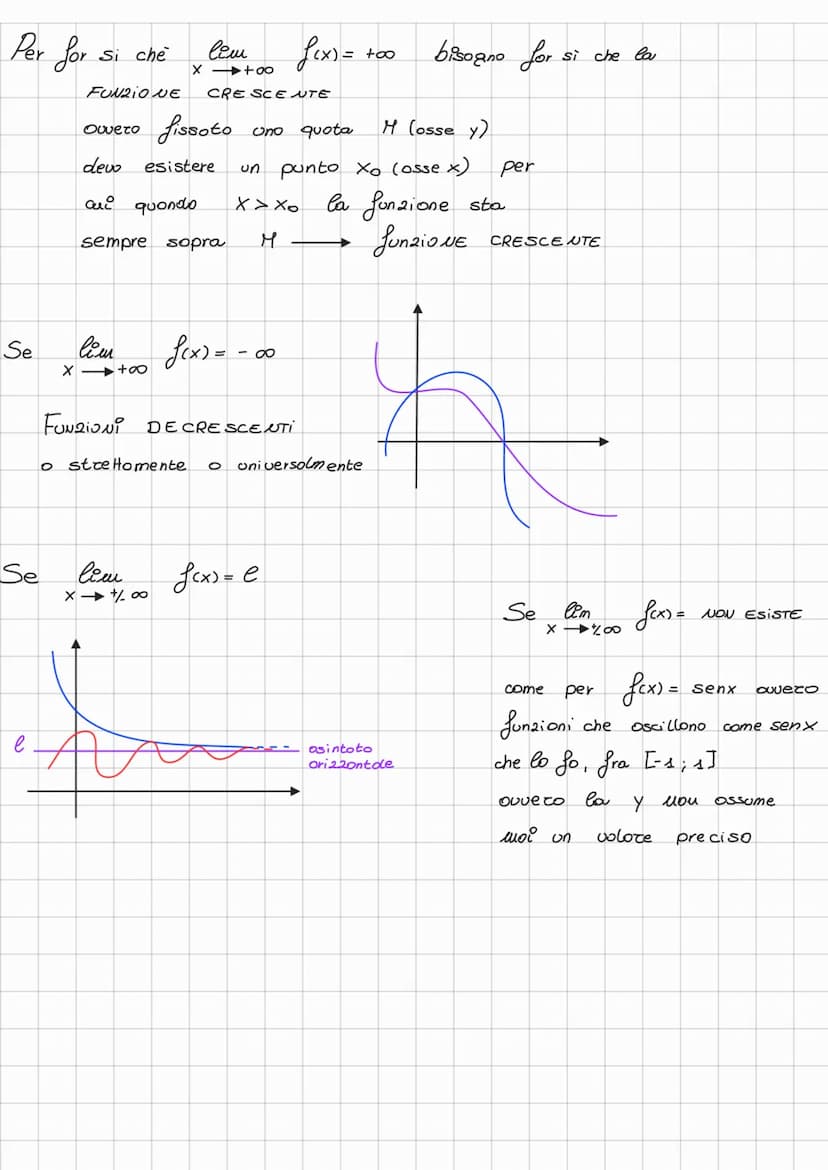 Per far si chè lim x → +∞ f(x) = +∞ bisogna far sì che la
FUNZIONE CRESCENTE
ovvero fissata una quota M (asse y)
deve esistere un punto x₀ (asse x) per
cui quando x > x₀ la funzione sta
sempre sopra M → funziONE CRESCENTE
Se lim x → +∞ f(x) = - ∞
FUNZIONI DECRESCENTI
o strettamente o universalmente
Se lim x → +/- ∞ f(x) = l
l
asintoto
orizzontale
Se lim x → +/- ∞ f(x) = NON ESISTE
come per f(x) = senx ovvero
funzioni che oscillano come senx
che lo fa, fra [-1 ; 1]
ovvero la y non assume
mai un valore preciso